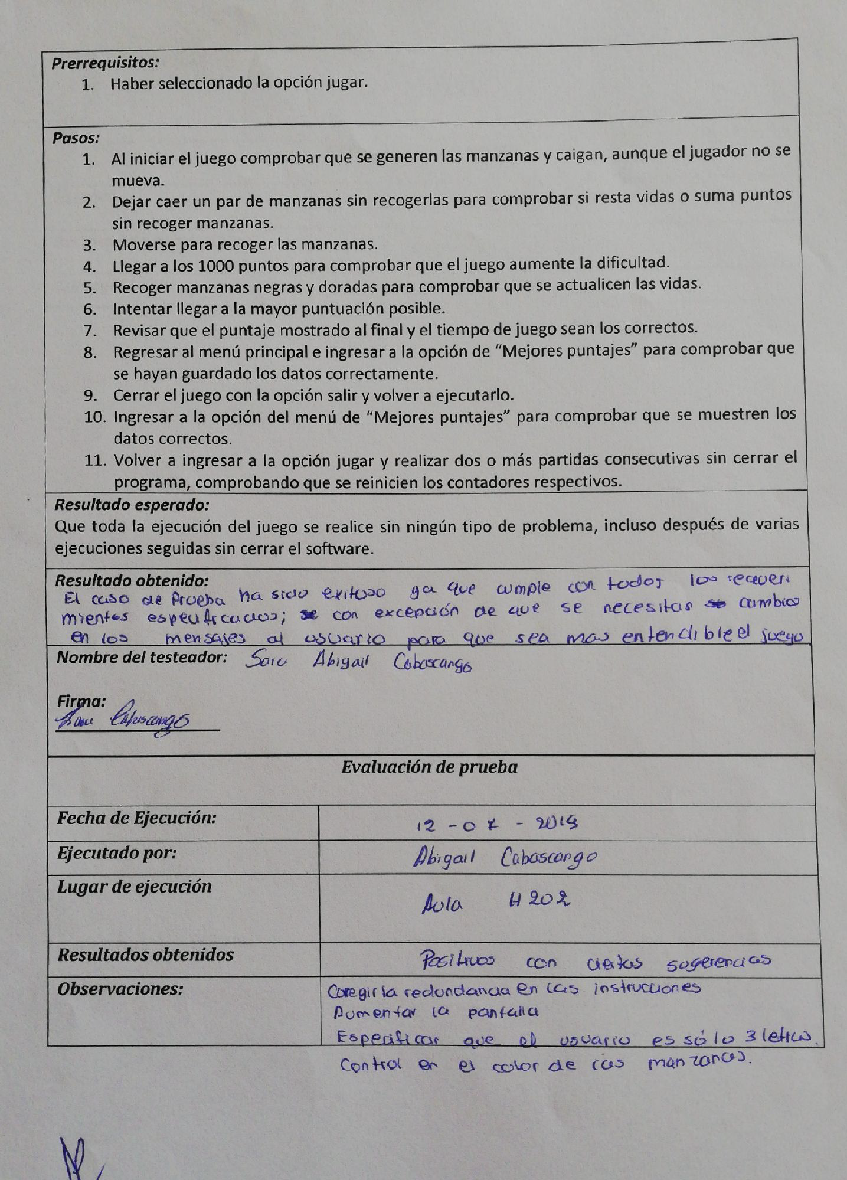 Prerrequisitos:
1. Haber seleccionado la opción jugar.
Pasos:
1. Al iniciar el juego comprobar que se generen las manzanas y caigan, aunque el jugador no se
mueva.
2. Dejar caer un par de manzanas sin recogerlas para comprobar si resta vidas o suma puntos
sin recoger manzanas.
3. Moverse para recoger las manzanas.
4. Llegar a los 1000 puntos para comprobar que el juego aumente la dificultad.
5. Recoger manzanas negras y doradas para comprobar que se actualicen las vidas.
6. Intentar llegar a la mayor puntuación posible.
7. Revisar que el puntaje mostrado al final y el tiempo de juego sean los correctos.
8. Regresar al menú principal e ingresar a la opción de “Mejores puntajes” para comprobar que
se hayan guardado los datos correctamente.
9. Cerrar el juego con la opción salir y volver a ejecutarlo.
10. Ingresar a la opción del menú de “Mejores puntajes” para comprobar que se muestren los
datos correctos.
11. Volver a ingresar a la opción jugar y realizar dos o más partidas consecutivas sin cerrar el
programa, comprobando que se reinicien los contadores respectivos.
Resultado esperado:
Que toda la ejecución del juego se realice sin ningún tipo de problema, incluso después de varias
ejecuciones seguidas sin cerrar el software.
Resultado obtenido:
El caso de Prueba ha sido exitoso ya que cumple con todos los requeri
mientos especificados; con excepción de que se necesitas cambios
en los mensajes al usuario para que sea mas entendible el juego
Nombre del testeador: Sara Abigail Cabascango
Firma:
Cabascango
Evaluación de prueba
Fecha de Ejecución: 12 - 07 - 2019
Ejecutado por: Abigail Cabascango
Lugar de ejecución Aula H202
Resultados obtenidos Positivos con ciertas sugerencias
Observaciones: Coregir la redondancia en las instrucciones
Aumentar la pantalla
Especificar que el usuario es sólo 3 letras.
Control en el color de las manzanas.